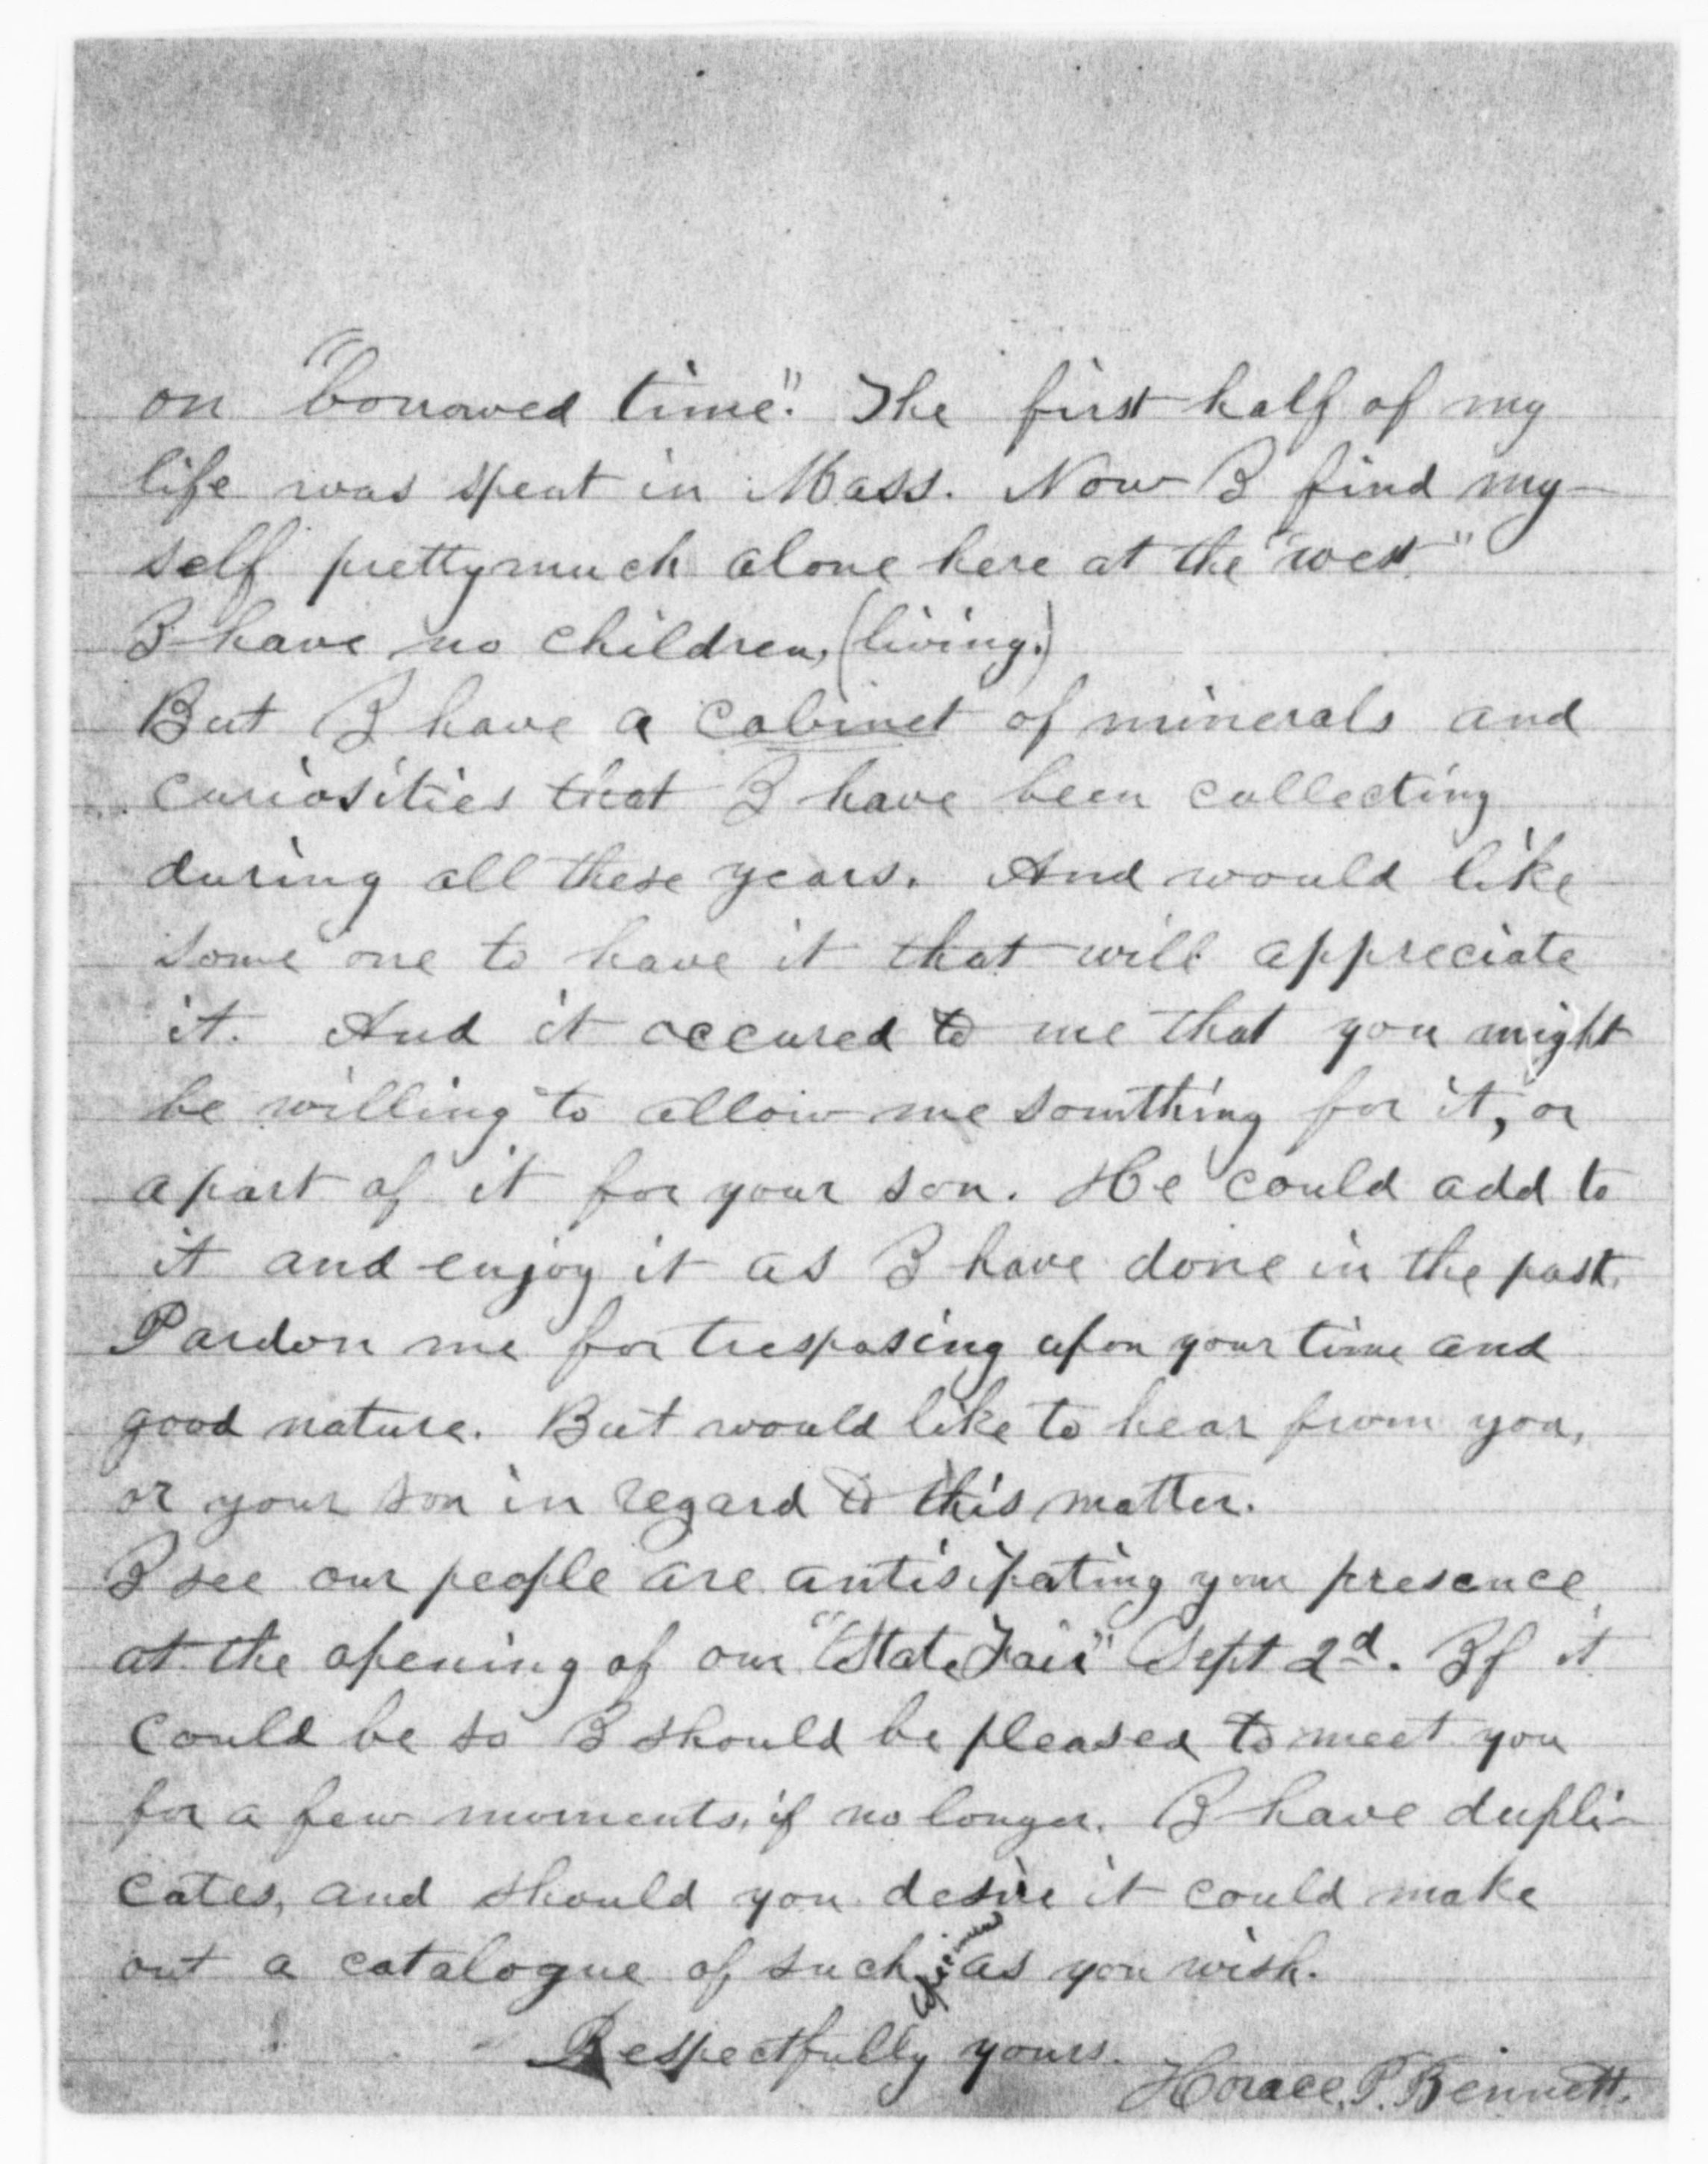 on "borrowed time". The first half of my
life was spent in Mass. Now I find my-
self pretty much alone here at the "west"
I have no children, (living.)
But I have a cabinet of minerals and
curiosities that I have been collecting
during all these years. And would like
some one to have it that will appreciate
it. And it occured to me that you might
be willing to allow me somthing for it, or
a part of it for your son. He could add to
it and enjoy it as I have done in the past.
Pardon me for trespasing upon your time and
good nature. But would like to hear from you,
or your son in regard to this matter.
I see our people are antisipating your presence
at the opening of our "State Fair" Sept 2d. If it
could be so I should be pleased to meet you
for a few moments, if no longer. I have dupli-
cates, and should you desire it could make
out a catalogue of such as you wish.
Respectfully yours.
Horace. P. Bennett.